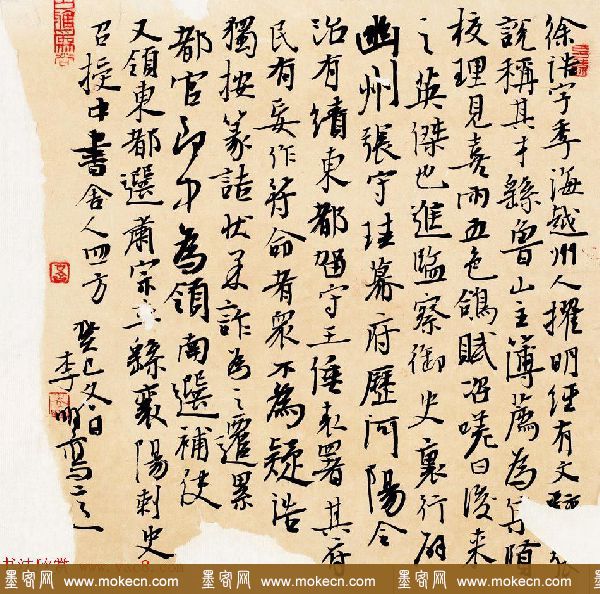 徐浩字季海越州人擢明經有文
說稱其才繇魯山主簿薦為
校理見喜雨五色鴿賦咨嗟曰後来
之英傑也進監察御史裏行辟
幽州張守珪幕府歷河陽令
治有績東都留守王倕表署其府
民有妄作符命者衆不為疑浩
獨按篆詰状果詐為之遷累
都官郎中為領南選補使
又領東都選肅宗立繇襄陽刺史
召授中書舍人四方
癸巳冬日
李明写
墨客网 www.mokecn.com 墨客网 www.mokecn.com 墨客网 www.mokecn.com